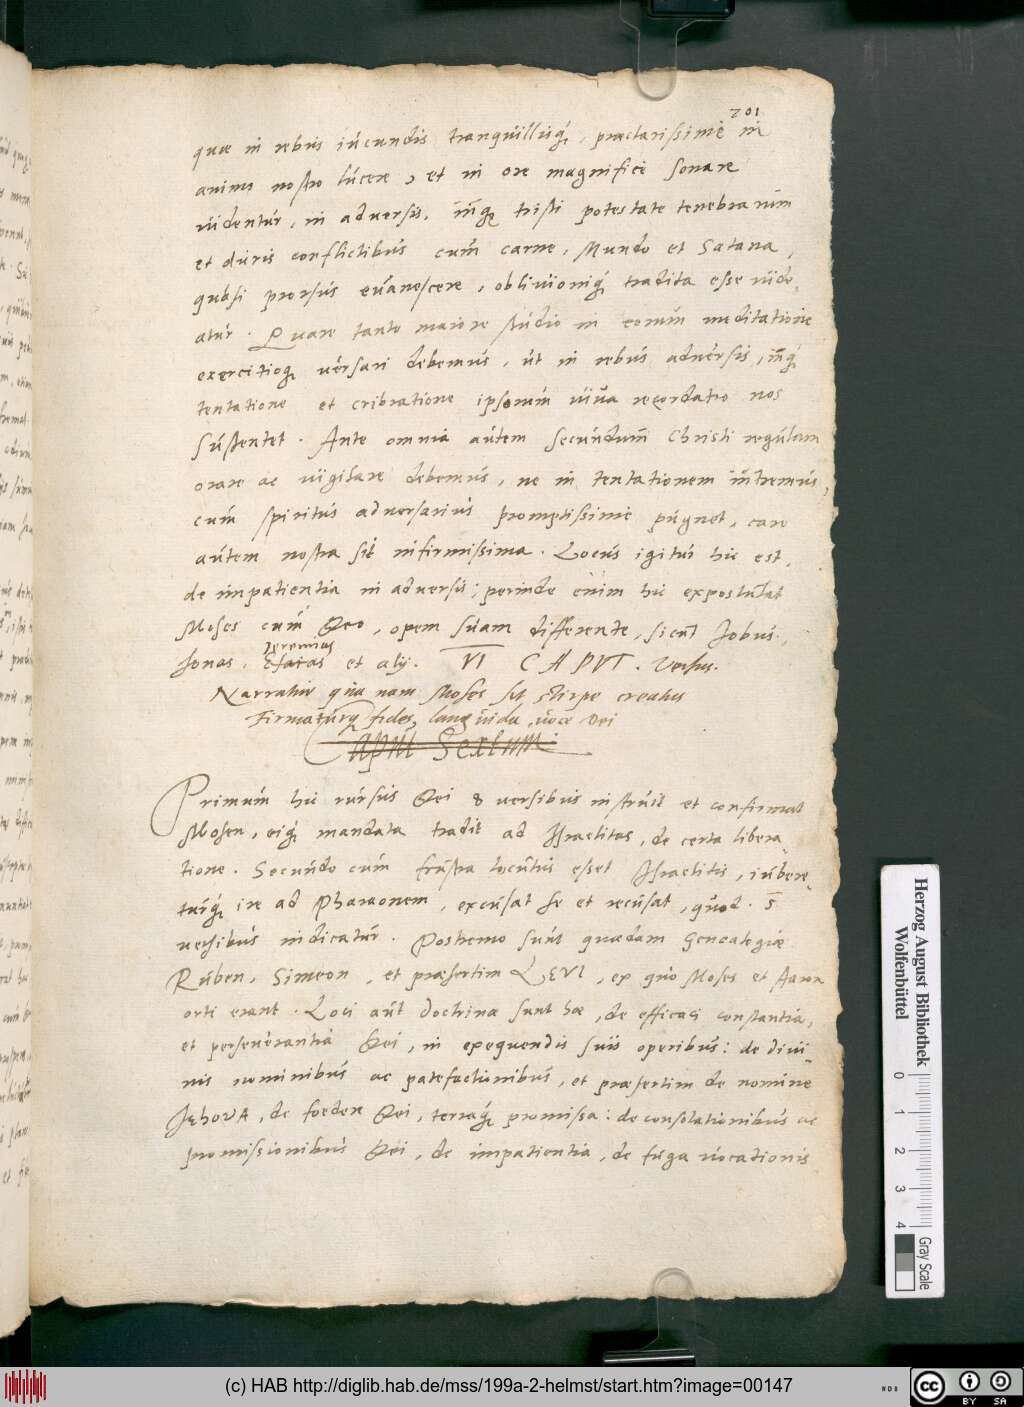 201
quæ in rebus iucundis tranquillisq́, præclarissimè in
animo nostro lucere, et in ore magnificè sonare
uidentur, in aduersis, inq́ tristi potestate tenebrarum
et duris conflictibus cum carne, Mundo et Satana,
quasi prorsus euanescere, obliuioniq́ tradita esse uide-
atur. Quare tanto maiore studio in eorum meditatione
exercitioq́ uersari debemus, ut in rebus aduersis, inq́
tentatione et cribratione ipsorum uiua recordatio nos
sustentet. Ante omnia autem secundum Christi regulam
orare ac uigilare debemus, ne in tentationem intremus,
cum spiritus aduersarius promptissimè pugnet, caro
autem nostra sit infirmissima. Locus igitur hic est,
de impatientia in aduersis; perinde enim hic expostulat
Moses cum Deo, opem suam differente, sicut Jobus,
Jeremias
Jonas, Esaias et alij. VI CAPVT. Versus.
Narratur qua nam Moses sit stirpe creatus
Firmaturq́ fides, languida, uoce Dei
Caput Sextum
Primum hic rursus Dei 8 uersibus instruit et confirmat
Mosen, eiq́ mandata tradit ad Israelitas, de certa libera-
tione. Secundo cum frustra locutus esset Israelitis, iubere-
turq́ ire ad Pharaonem, excusat se et recusat, quod. 5
uersibus indicatur. Postremo sunt quædam Genealogiæ
Ruben, Simeon, et præsertim LEVI, ex quo Moses et Aaron
orti erant. Loci aut doctrina sunt hæ, de efficaci constantia,
et perseuerantia Dei, in exequendis suis operibus: de diui-
nis nominibus ac patefactionibus, et præsertim de nomine
JEhoVA, de foedere Dei, terraq́ promissa: de consolationibus ac
promissionibus Dei, de impatientia, de fuga uocationis
Herzog August Bibliothek
Wolfenbüttel
0 1 2 3 4
Gray Scale
(c) HAB http://diglib.hab.de/mss/199a-2-helmst/start.htm?image=00147
cc BY SA